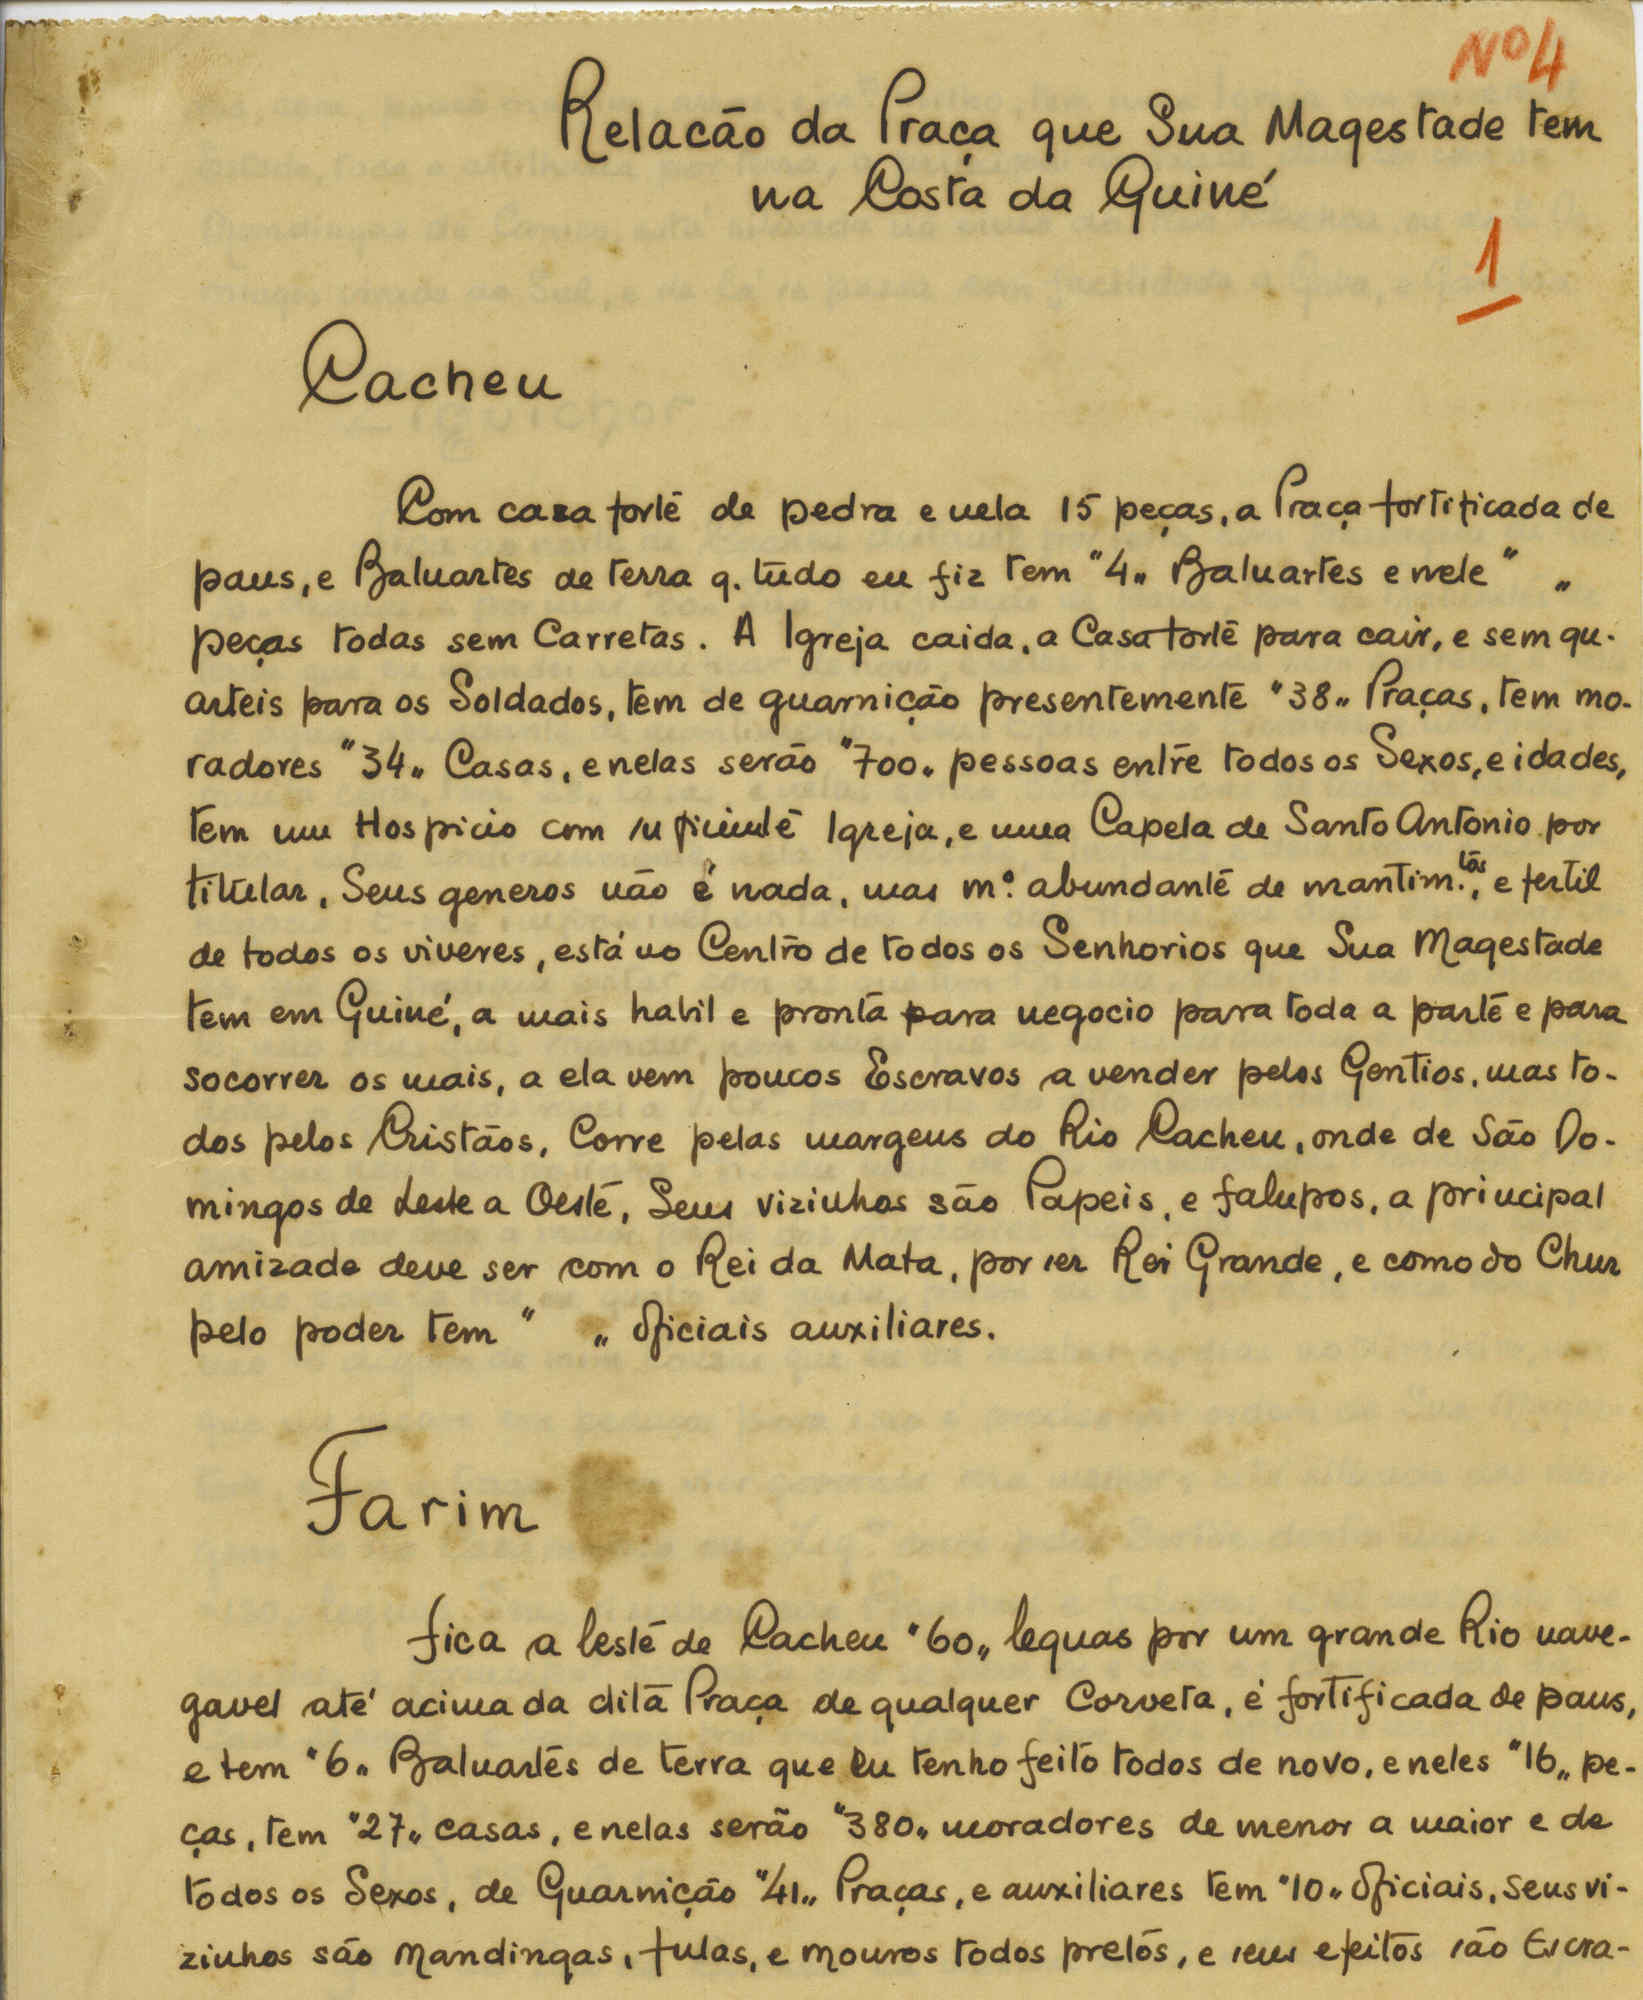 Nº 4
Relacão da Praça que Sua Magestade tem
na Costa da Guiné
1
Cacheu
Com casa forte de pedra e nela 15 peças, a Praça fortificada de
paus, e Baluartes de terra q. tudo eu fiz tem "4„ Baluartes e nele " „
peças todas sem Carretas. A Igreja caida, a Casa forte para cair, e sem qu-
arteis para os Soldados, tem de guarnição presentemente "38„ Praças, tem mo-
radores "34„ Casas, e nelas serão "700„ pessoas entre todos os Sexos, e idades,
tem um Hospicio com suficiente Igreja, e uma Capela de Santo Antonio por
titular, Seus generos não é nada, mas mº abundante de mantim.tos, e fertil
de todos os viveres, está no Centro de todos os Senhorios que Sua Magestade
tem em Guiné, a mais habil e pronta para negocio para toda a parte e para
socorrer os mais, a ela vem poucos Escravos a vender pelos Gentios, mas to-
dos pelos Cristãos, Corre pelas margens do Rio Cacheu, onde de São Do-
mingos de Leste a Oeste, Seus vizinhos são Papeis, e falupos, a principal
amizade deve ser com o Rei da Mata, por ser Rei Grande, e como do Chur
pelo poder tem " „ Oficiais auxiliares.
Farim
fica a leste de Cacheu "60„ leguas por um grande Rio nave-
gavel até acima da dita Praça de qualquer Corveta, é fortificada de paus,
e tem "6„ Baluartes de terra que Eu tenho feito todos de novo, e neles "16„ pe-
ças, tem "27„ casas, e nelas serão "380„ moradores de menor a maior e de
todos os Sexos, de Guarnição "41„ Praças, e auxiliares tem "10„ Oficiais, seus vi-
zinhos são Mandingas, fulas, e mouros todos pretos, e seus efeitos são Escra-